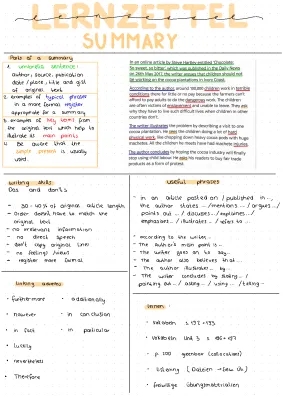 LERNZETTEL
SUMMARY
Parts of a summary
1. umbrella sentence:
author, source, publication
date / place, title and gist
of original work
2. examples of typical phrases
in a more formal register
appropriate for a summary
3. examples of key words from
the original text which help to
illustrate its main points
4. Be aware that the
simple present is usually
used.
In an online article by Steve Hartley entitled 'Chocolate:
So sweet, so bitter' which was published in the Daily News
on 26th May 2017, the writer argues that children should not
be working on the cocoa plantations in Ivory Coast.
According to the author, around 100,000 children work in terrible
conditions there for little or no pay because the farmers can't
afford to pay adults to do the dangerous work. The children
are often victims of and unable to leave. They ask
why they have to live such difficult lives when children in other
countries don't.
The writer illustrates the problem by describing a visit to one
cocoa plantation. He sees the children doing a lot of hard
physical work, like chopping down heavy cocoa pods with huge
machetes. All the children he meets have had machete injuries.
The author concludes by hoping the cocoa industry will finally
stop using child labour. He asks his readers to buy fair trade
products as a form of protest.
Writing skills:
Dos and don'ts
- 30-40% of original article length
- order doesn't have to match the
original text
- no irrelevant information
- no direct speech
- don't copy original lines
- no feeling/
- register more formal
Useful phrases
- in an article posted on / published in...,
the author states ... / mentions ... / argues /
points out ... / discusses ... / explains ... /
emphasises ... / illustrates ... / refers to ...
- according to the writer...
- The author's main point is...
- The writer goes on to say...
- The author also believes that...
- The author illustrates ... by...
- The writer concludes by saying /
pointing out ... / asking ... / using ... / telling...
Linking adverbs
• furthermore
• additionally
• however
• in conclusion
• in fact
• in particular
• luckily
• nevertheless
• Therefore
lernen:
• Vokabeln s. 192-193
• Vokabeln Unit 3 s.
• p. 100 (collocation)
• listening (Dateien →
• freiwillig Übungsmaterialien